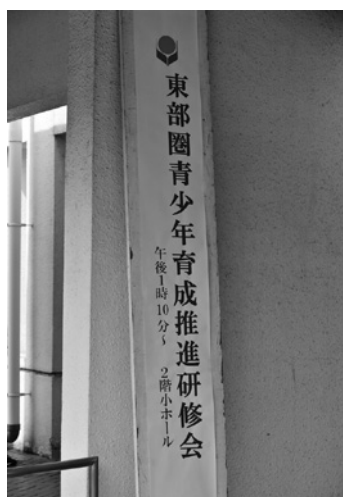 東部圏青少年育成推進研修会
午後1時10分~ 2階小ホール